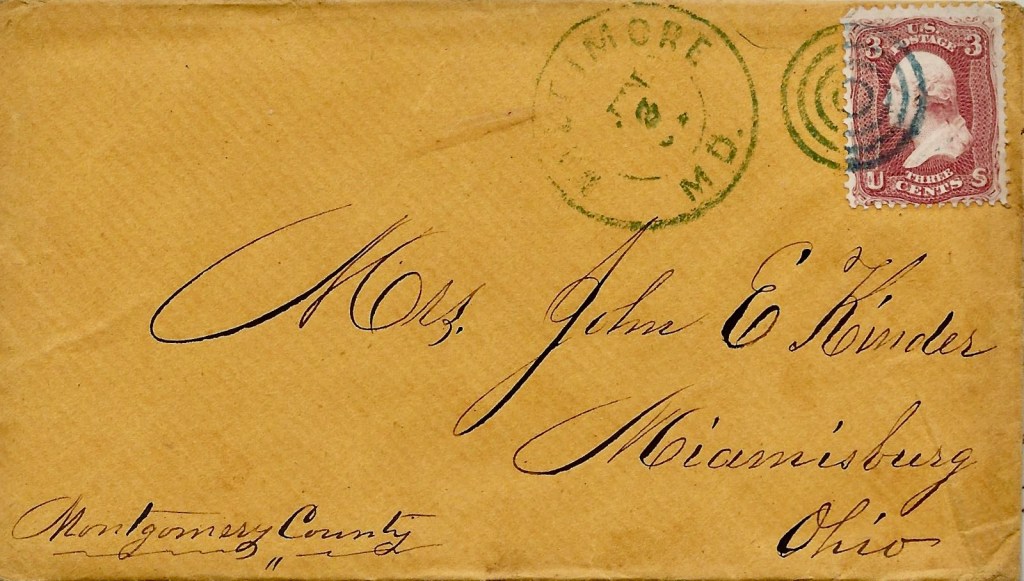 BALTIMORE
MD.
U.S.
POSTAGE
3 3
THREE
U CENTS S
Mrs. John E Kinder
Miamisburg
Ohio
Montgomery County